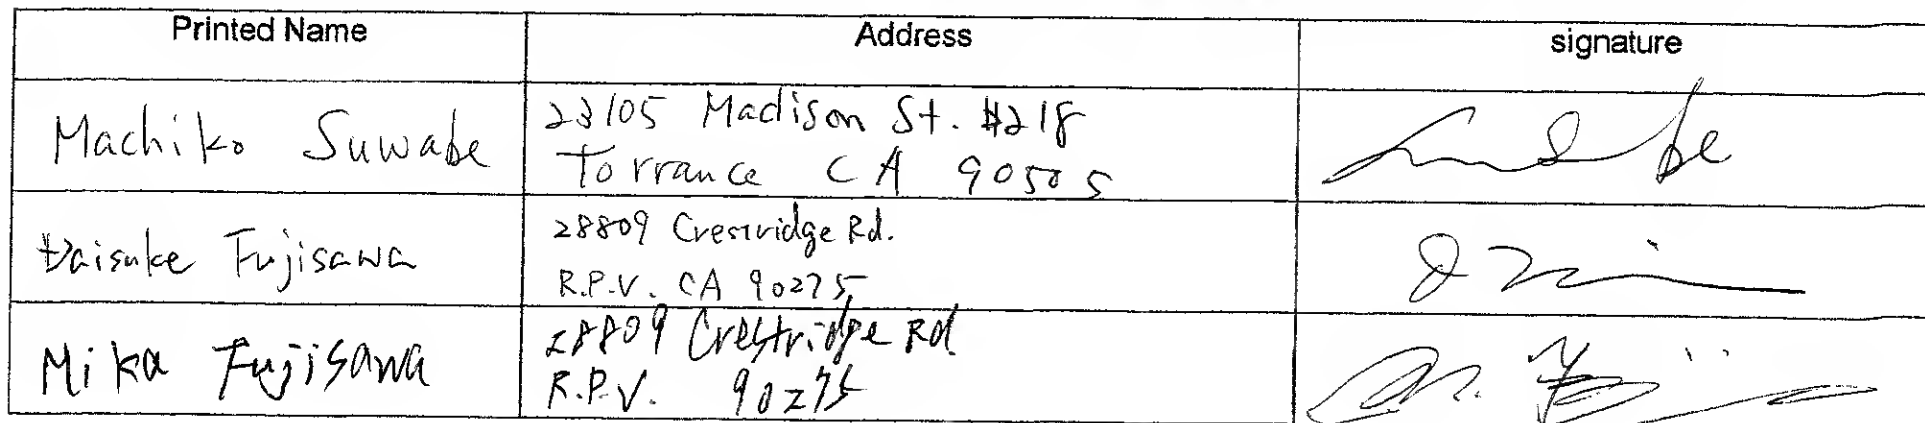 Printed Name Address signature
Machiko Suwabe
23105 Madison St. #218
Torrance CA 90505
Daisuke Fujisawa
28809 Crestridge Rd.
R.P.V. CA 90275
Mika Fujisawa
28809 Crestridge Rd
R.P.V. 90275